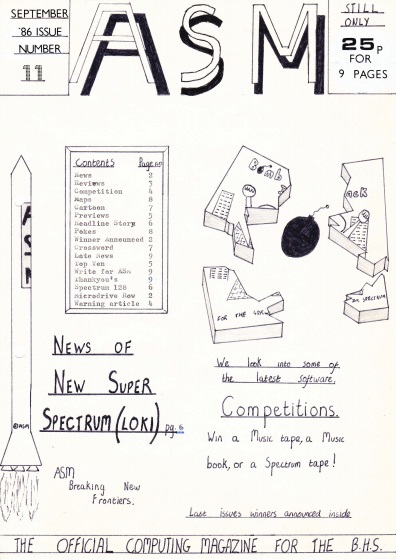 SEPTEMBER
'86 ISSUE
NUMBER
11
ASM
STILL
ONLY
25p
FOR
9 PAGES
Contents Page no
News 2
Reviews 3
Competition 4
Maps 8
Cartoon 7
Previews 5
Headline Story 6
Pokes 8
Winner Announced 2
Crossword 7
Late News 9
Top Ten 5
Write for ASM 9
Thankyou's 9
Spectrum 128 6
Microdrive Row 2
Warning article 4
Bomb
Jack
FOR THE 48K
ZX SPECTRUM
ASM
©ASM
NEWS OF
NEW SUPER
SPECTRUM (LOKI) pg. 6
ASM
Breaking New
Frontiers.
We look into some of
the latest software.
Competitions.
Win a Music tape, a Music
book, or a Spectrum tape!
Last issues winners announced inside
THE OFFICIAL COMPUTING MAGAZINE FOR THE B.H.S.